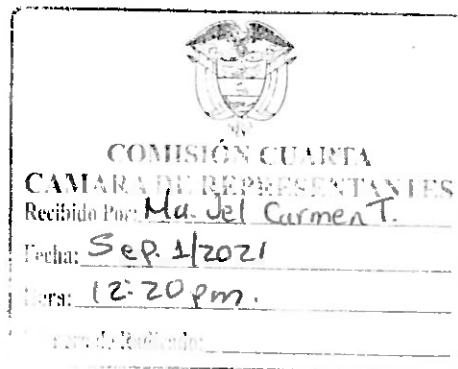 COMISIÓN CUARTA
CAMARA DE REPRESENTANTES
Recibido Por: Ma. Del Carmen T.
Fecha: Sep. 1/2021
Hora: 12:20 pm.
de Radicado: